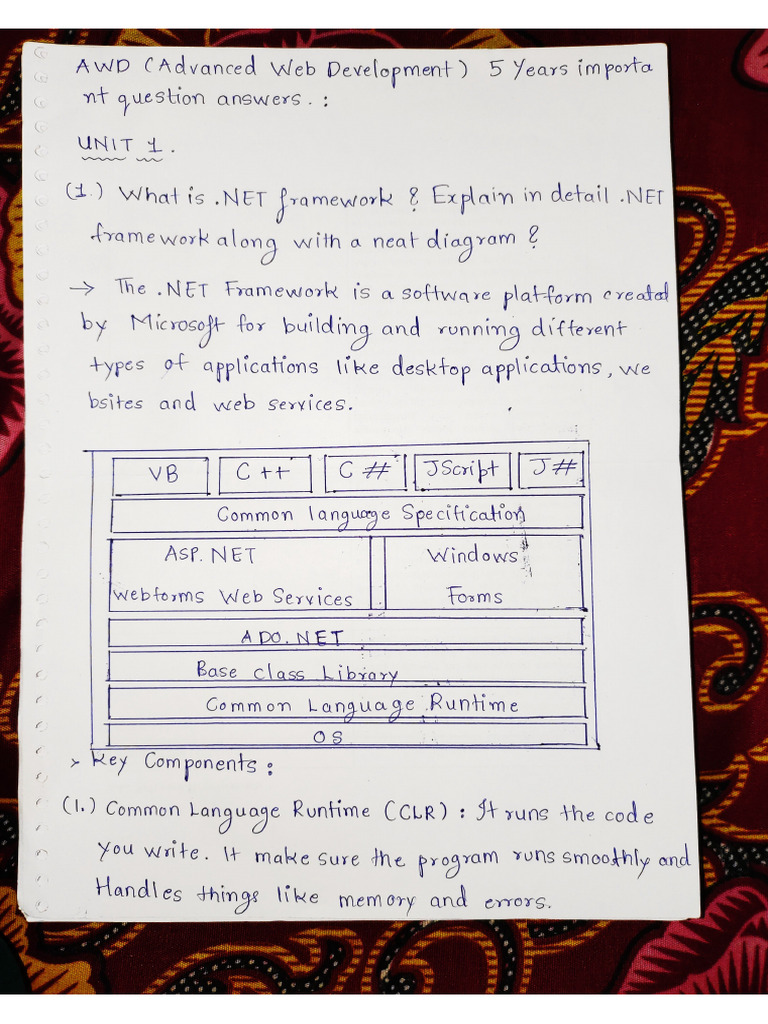 AWD (Advanced Web Development) 5 Years importa
nt question answers. :
UNIT 1.
(1.) What is .NET framework ? Explain in detail .NET
framework along with a neat diagram ?
→ The .NET Framework is a software platform created
by Microsoft for building and running different
types of applications like desktop applications, we
bsites and web services.
VB C++ C# JScript J#
Common language Specification
ASP.NET Windows
webforms Web Services Forms
ADO.NET
Base class Library
Common Language Runtime
OS
> Key Components :
(1.) Common Language Runtime (CLR) : It runs the code
you write. It make sure the program runs smoothly and
Handles things like memory and errors.